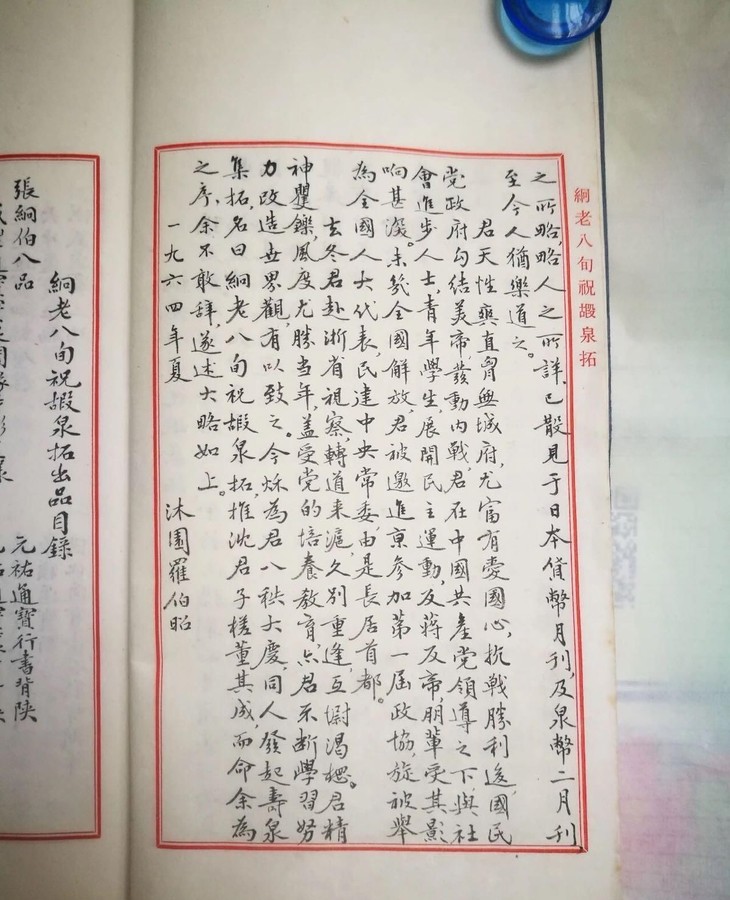 絅老八旬祝嘏泉拓
之所略,略人之所詳,已散見于日本貨幣月刊,及泉幣二月刊
至今人猶樂道之。
君天性爽直,胷無城府,尤富有愛國心,抗戰勝利後,國民
党政府勾结美帝,發動内戰,君在中國共產党領導之下,與社
會進步人士,青年學生,展開民主運動,反蒋反帝,朋輩受其影
响甚深。未幾全國解放,君被邀進京参加第一屆政協,旋被舉
為全國人大代表,民建中央常委,由是長居首都。
去冬君赴浙省視察,轉道来滬,久别重逢,互慰渴想。君精
神矍鑠,風度尤勝当年,盖受党的培養教育,亦君不断學習努
力改造世界觀,有以致之。今秌為君八秩大慶,同人發起壽泉
集拓,名曰絅老八旬祝嘏泉拓,推沈君子槎董其成,而命余為
之序,余不敢辞,遂述大略如上。
一九六四年夏
沐園羅伯昭
絅老八旬祝嘏泉拓出品目錄
張絅伯八品
元祐通寶行書背陝